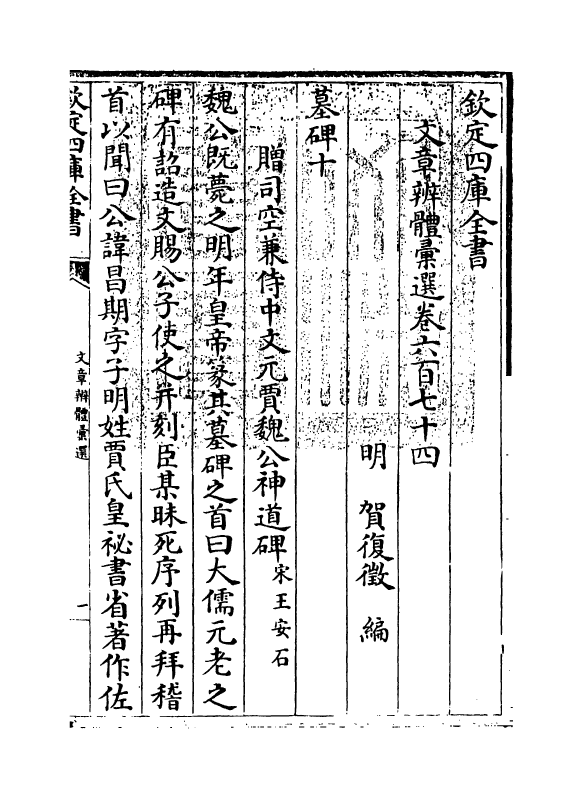 欽定四庫全書
文章辨體彚選卷六百七十四
明 賀復徵 編
墓碑十
贈司空兼侍中文元賈魏公神道碑宋王安石
魏公既薨之明年皇帝篆其墓碑之首曰大儒元老之
碑有詔造文賜公子使之并刻臣某昧死序列再拜稽
首以聞曰公諱昌期字子明姓賈氏皇祕書省著作佐
欽定四庫全書
文章辨體彚選
一